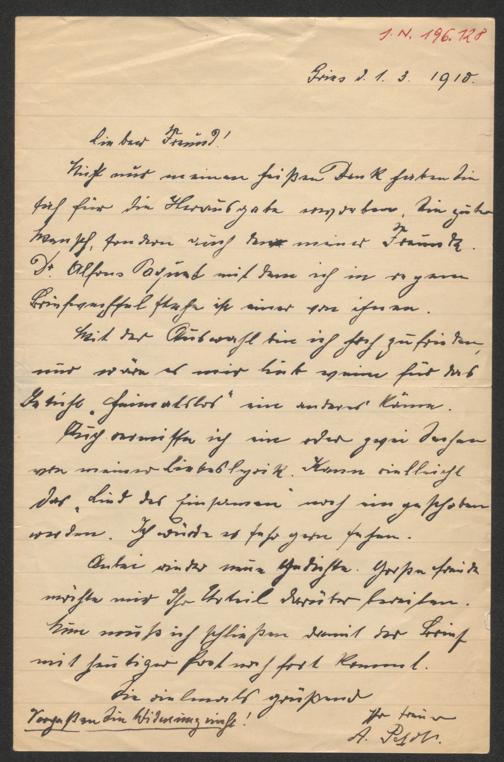 J. N. 196.128
Gries d. 1. 3. 1910.
Lieber Freund!
Nicht nur meinen heißen Dank haben Sie
sich für die Herausgabe erworben, Sie guter
Mensch, sondern auch den meiner Freunde.
Dr. Alfons Paquet mit dem ich in regem
Briefwechsel stehe ist einer von ihnen.
Mit der Auswahl bin ich hoch zufrieden,
nur wäre es mir lieb wenn für das
Gedicht „Heimatlos" ein anderes käme.
Auch vermisse ich ein oder zwei Sachen
von meiner Liebeslyrik. Kann vielleicht
das „Lied des Einsamen" noch eingeschoben
werden. Ich würde es sehr gern sehen.
Anbei wieder neue Gedichte. Große Freude
möchte mir Ihr Urteil darüber bereiten.
Nun muß ich schließen damit der Brief
mit heutiger Post noch fort kommt.
Sie vielmals grüßend
Ihr treuer
Vergessen Sie Widmung nicht!
A.